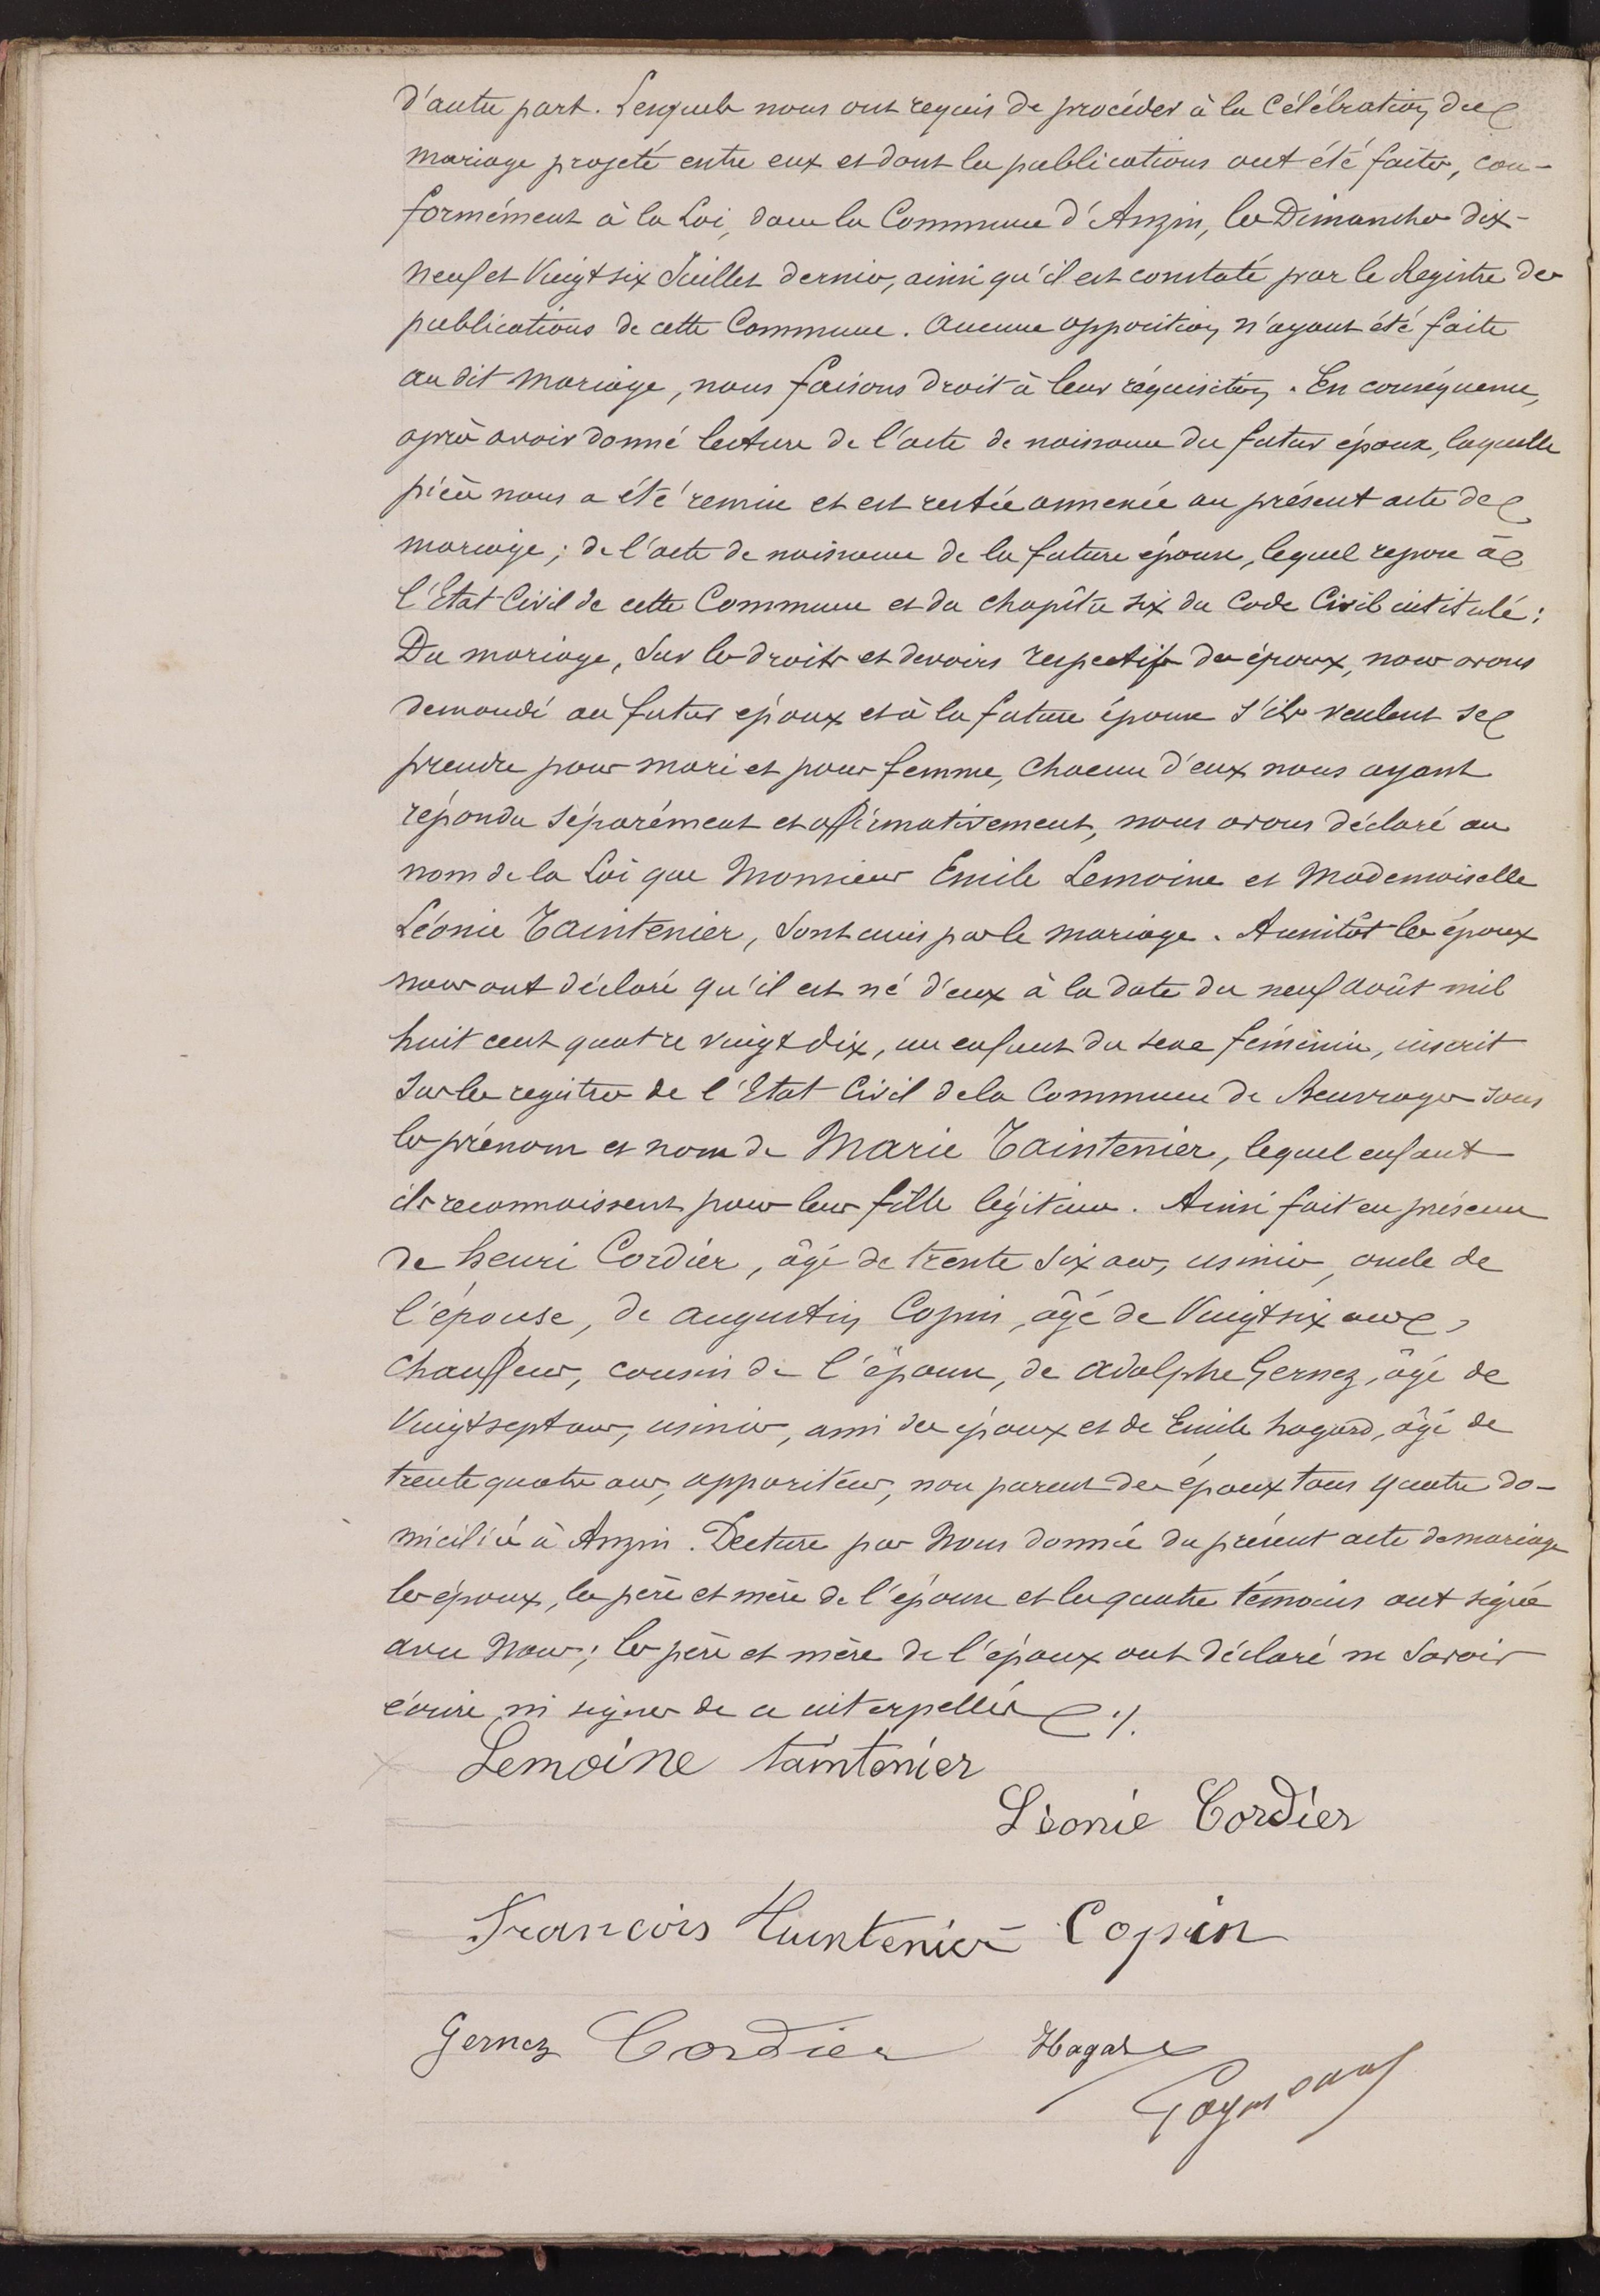 d'autre part. Lesquels nous ont requis de procéder à la Célébration du
mariage projeté entre eux et dont les publications ont été faites, con-
formément à la Loi, dans la Commune d'Anzin, les Dimanches dix-
neuf et Vingt six Juillet dernier, ainsi qu'il est constaté par le Registre des
publications de cette Commune. Aucune opposition n'ayant été faite
au dit mariage, nous faisons droit à leur réquisition. En conséquence,
après avoir donné lecture de l'acte de naissance du futur époux, laquelle
pièce nous a été remise et est restée annexée au présent acte de
mariage; de l'acte de naissance de la future épouse, lequel repose à
l'Etat Civil de cette Commune et du chapître six du Code Civil intitulé:
Du mariage, Sur les droits et devoirs respectifs des époux, nous avons
demandé au futur époux et à la future épouse s'ils veulent se
prendre pour mari et pour femme, Chacun d'eux nous ayant
répondu séparément et affirmativement, nous avons déclaré au
nom de la Loi que Monsieur Emile Lemoine et Mademoiselle
Léonie Taintenier, sont unis par le mariage. Aussitôt les époux
nous ont déclaré qu'il est né d'eux à la date du neuf août mil
huit cent quatre vingt dix, un enfant du sexe féminin, inscrit
sur les registres de l'Etat Civil de la Commune de Beuvrages sous
les prénom et nom de Marie Taintenier, lequel enfant
ils reconnaissent pour leur fille légitime. Ainsi fait en présence
de henri Cordier, âgé de trente six ans, usinier, oncle de
l'épouse, de augustin Copin, âgé de Vingt six ans,
chauffeur, cousin de l'épouse, de adolphe Gernez, âgé de
Vingt sept ans, usinier, ami des époux et de Emile hagard, âgé de
trente quatre ans, appariteur, non parent des époux tous quatre do-
miciliés à Anzin. Lecture par Nous donnée du présent acte de mariage
les époux, les père et mère de l'épouse et les quatre témoins ont signé
avec Nous; les père et mère de l'époux ont déclaré ne savoir
écrire ni signer de ce interpellés ./.
Lemoine taintenier
Léonie Cordier
Francois Taintenier Copin
Gernez Cordier Hagard